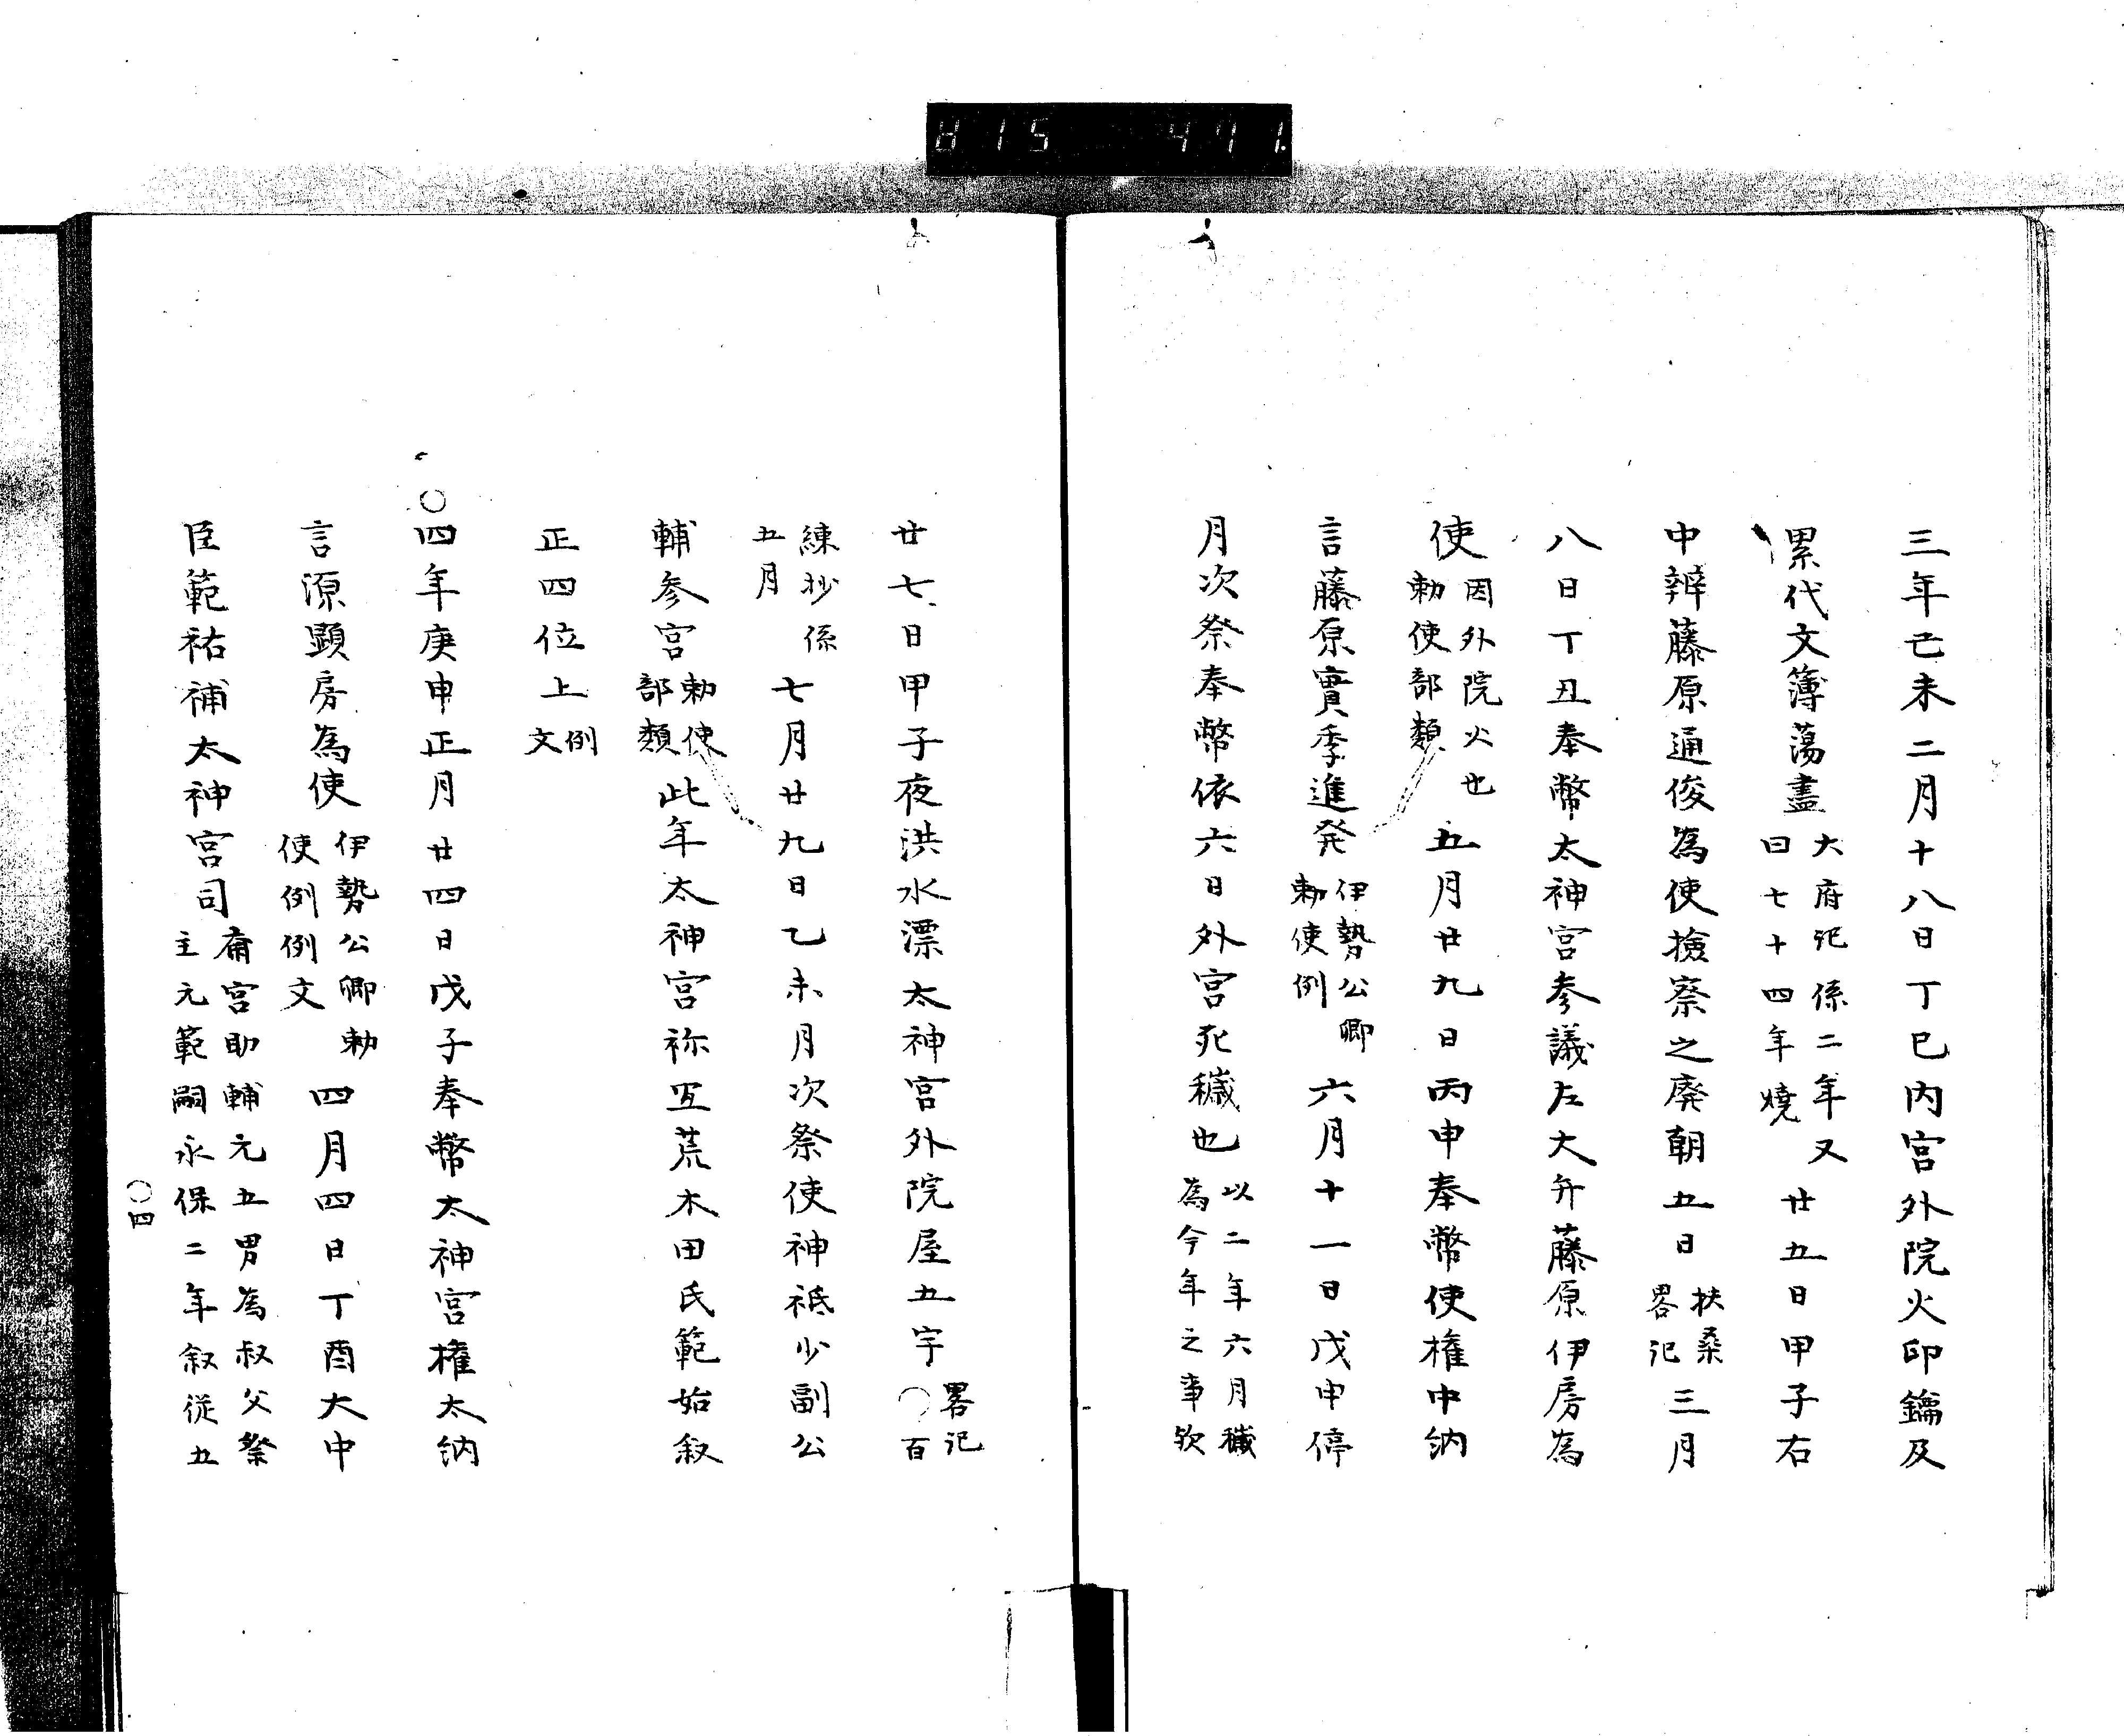 815 471.
三年己未二月十八日丁巳内宮外院火印鑰及
累代文簿蕩盡
大府記係二年又
曰七十四年燒
廿五日甲子右
中辨藤原通俊為使撿察之廃朝五日
扶桑
畧記
三月
八日丁丑奉幣太神宮参議左大弁藤原伊房為
使
因外院火也
勅使部類
五月廿九日丙申奉幣使權中納
言藤原實季進発
伊勢公卿
勅使例
六月十一日戊申停
月次祭奉幣依六日外宮死穢也
以二年六月穢
為今年之事欤
廿七日甲子夜洪水漂太神宮外院屋五宇
畧記
〇百
練抄係
五月
七月廿九日乙未月次祭使神祇少副公
輔参宮
勅使
部類
此年太神宮祢宜荒木田氏範始叙
正四位上
例
文
〇四年庚申正月廿四日戊子奉幣太神宮權太納
言源顕房為使
伊勢公卿勅
使例例文
四月四日丁酉大中
臣範祐補太神宮司
齋宮助輔元五男為叔父祭
主元範嗣永保二年叙従五
〇四